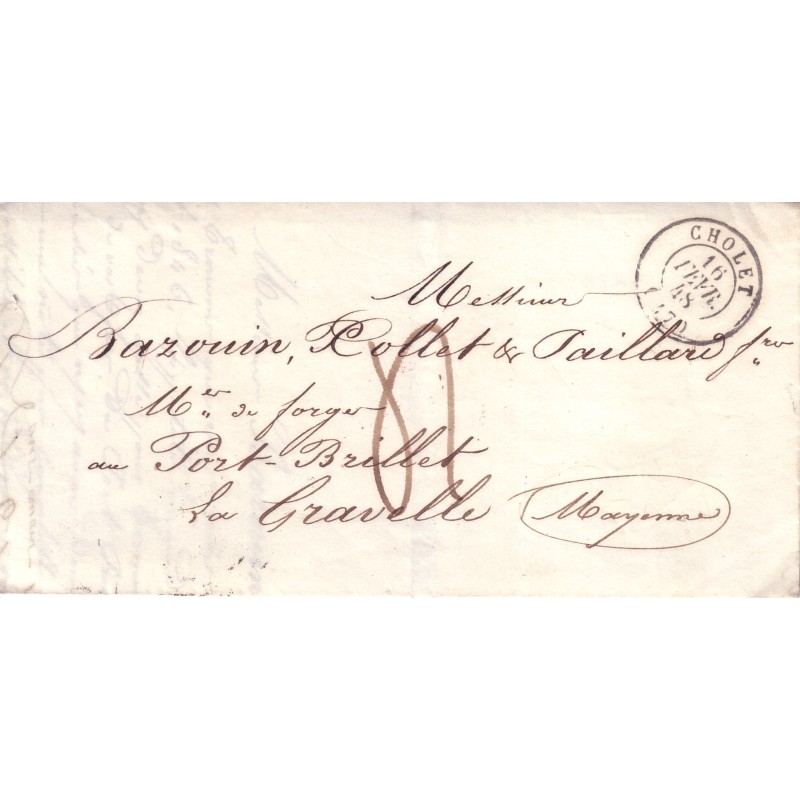 CHOLET
16
FEVR.
48
(47)
Messieurs
Bazouin, Collet & Taillard frs
Mes de forges
au Port-Brillet
La Gravelle Mayenne